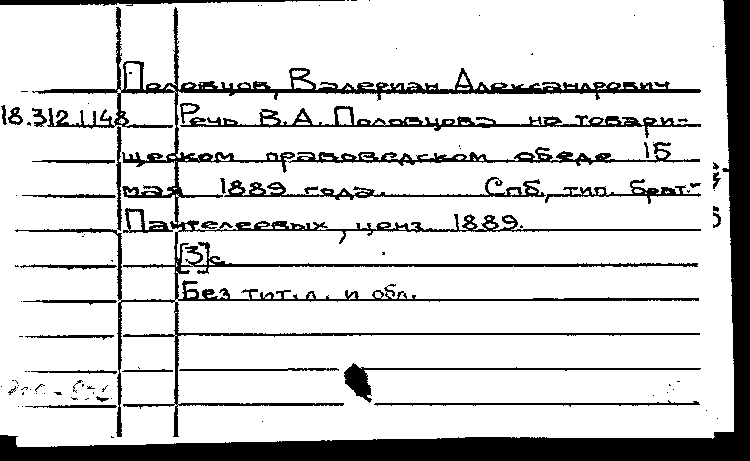 Половцов, Валериан Александрович
18.312.1148 Речь В.А. Половцова на товари-
щеском правоведском обеде 15
мая 1889 года. Спб, тип. брат.
Пантелеевых, ценз. 1889.
[3] с.
Без тит. л. и обл.